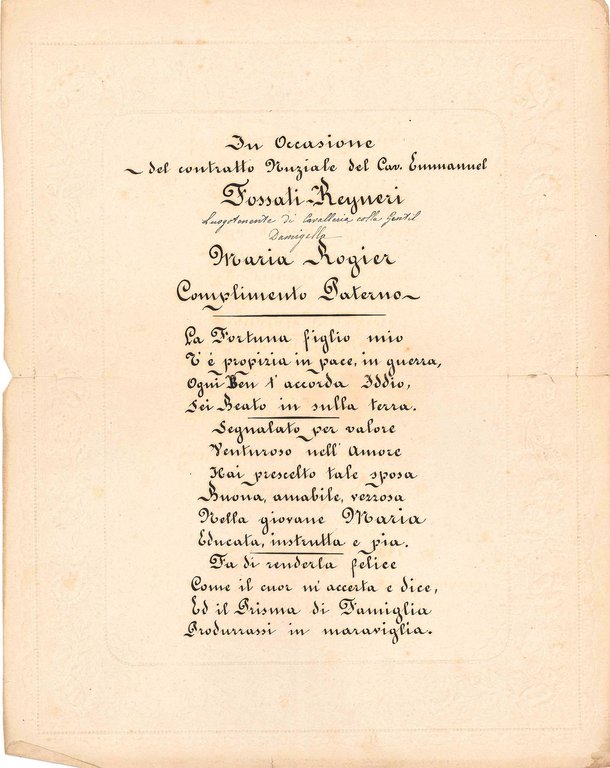 In Occasione
del contratto Nuziale del Cav. Emmanuel
Fossati-Reyneri
Luogotenente di Cavalleria colla Gentil
Damigella
Maria Rogier
Complimento Paterno
La Fortuna figlio mio
T'é propizia in pace, in guerra,
Ogni Ben t'accorda Iddio,
Sei Beato in sulla terra.
Segnalato per valore
Venturoso nell'Amore
Hai prescelto tale sposa
Buona, amabile, vezzosa
Nella giovane Maria
Educata, instrutta e pia.
Fa di renderla felice
Come il cuor m'accerta e dice,
Ed il Prisma di Famiglia
Produrrassi in maraviglia.